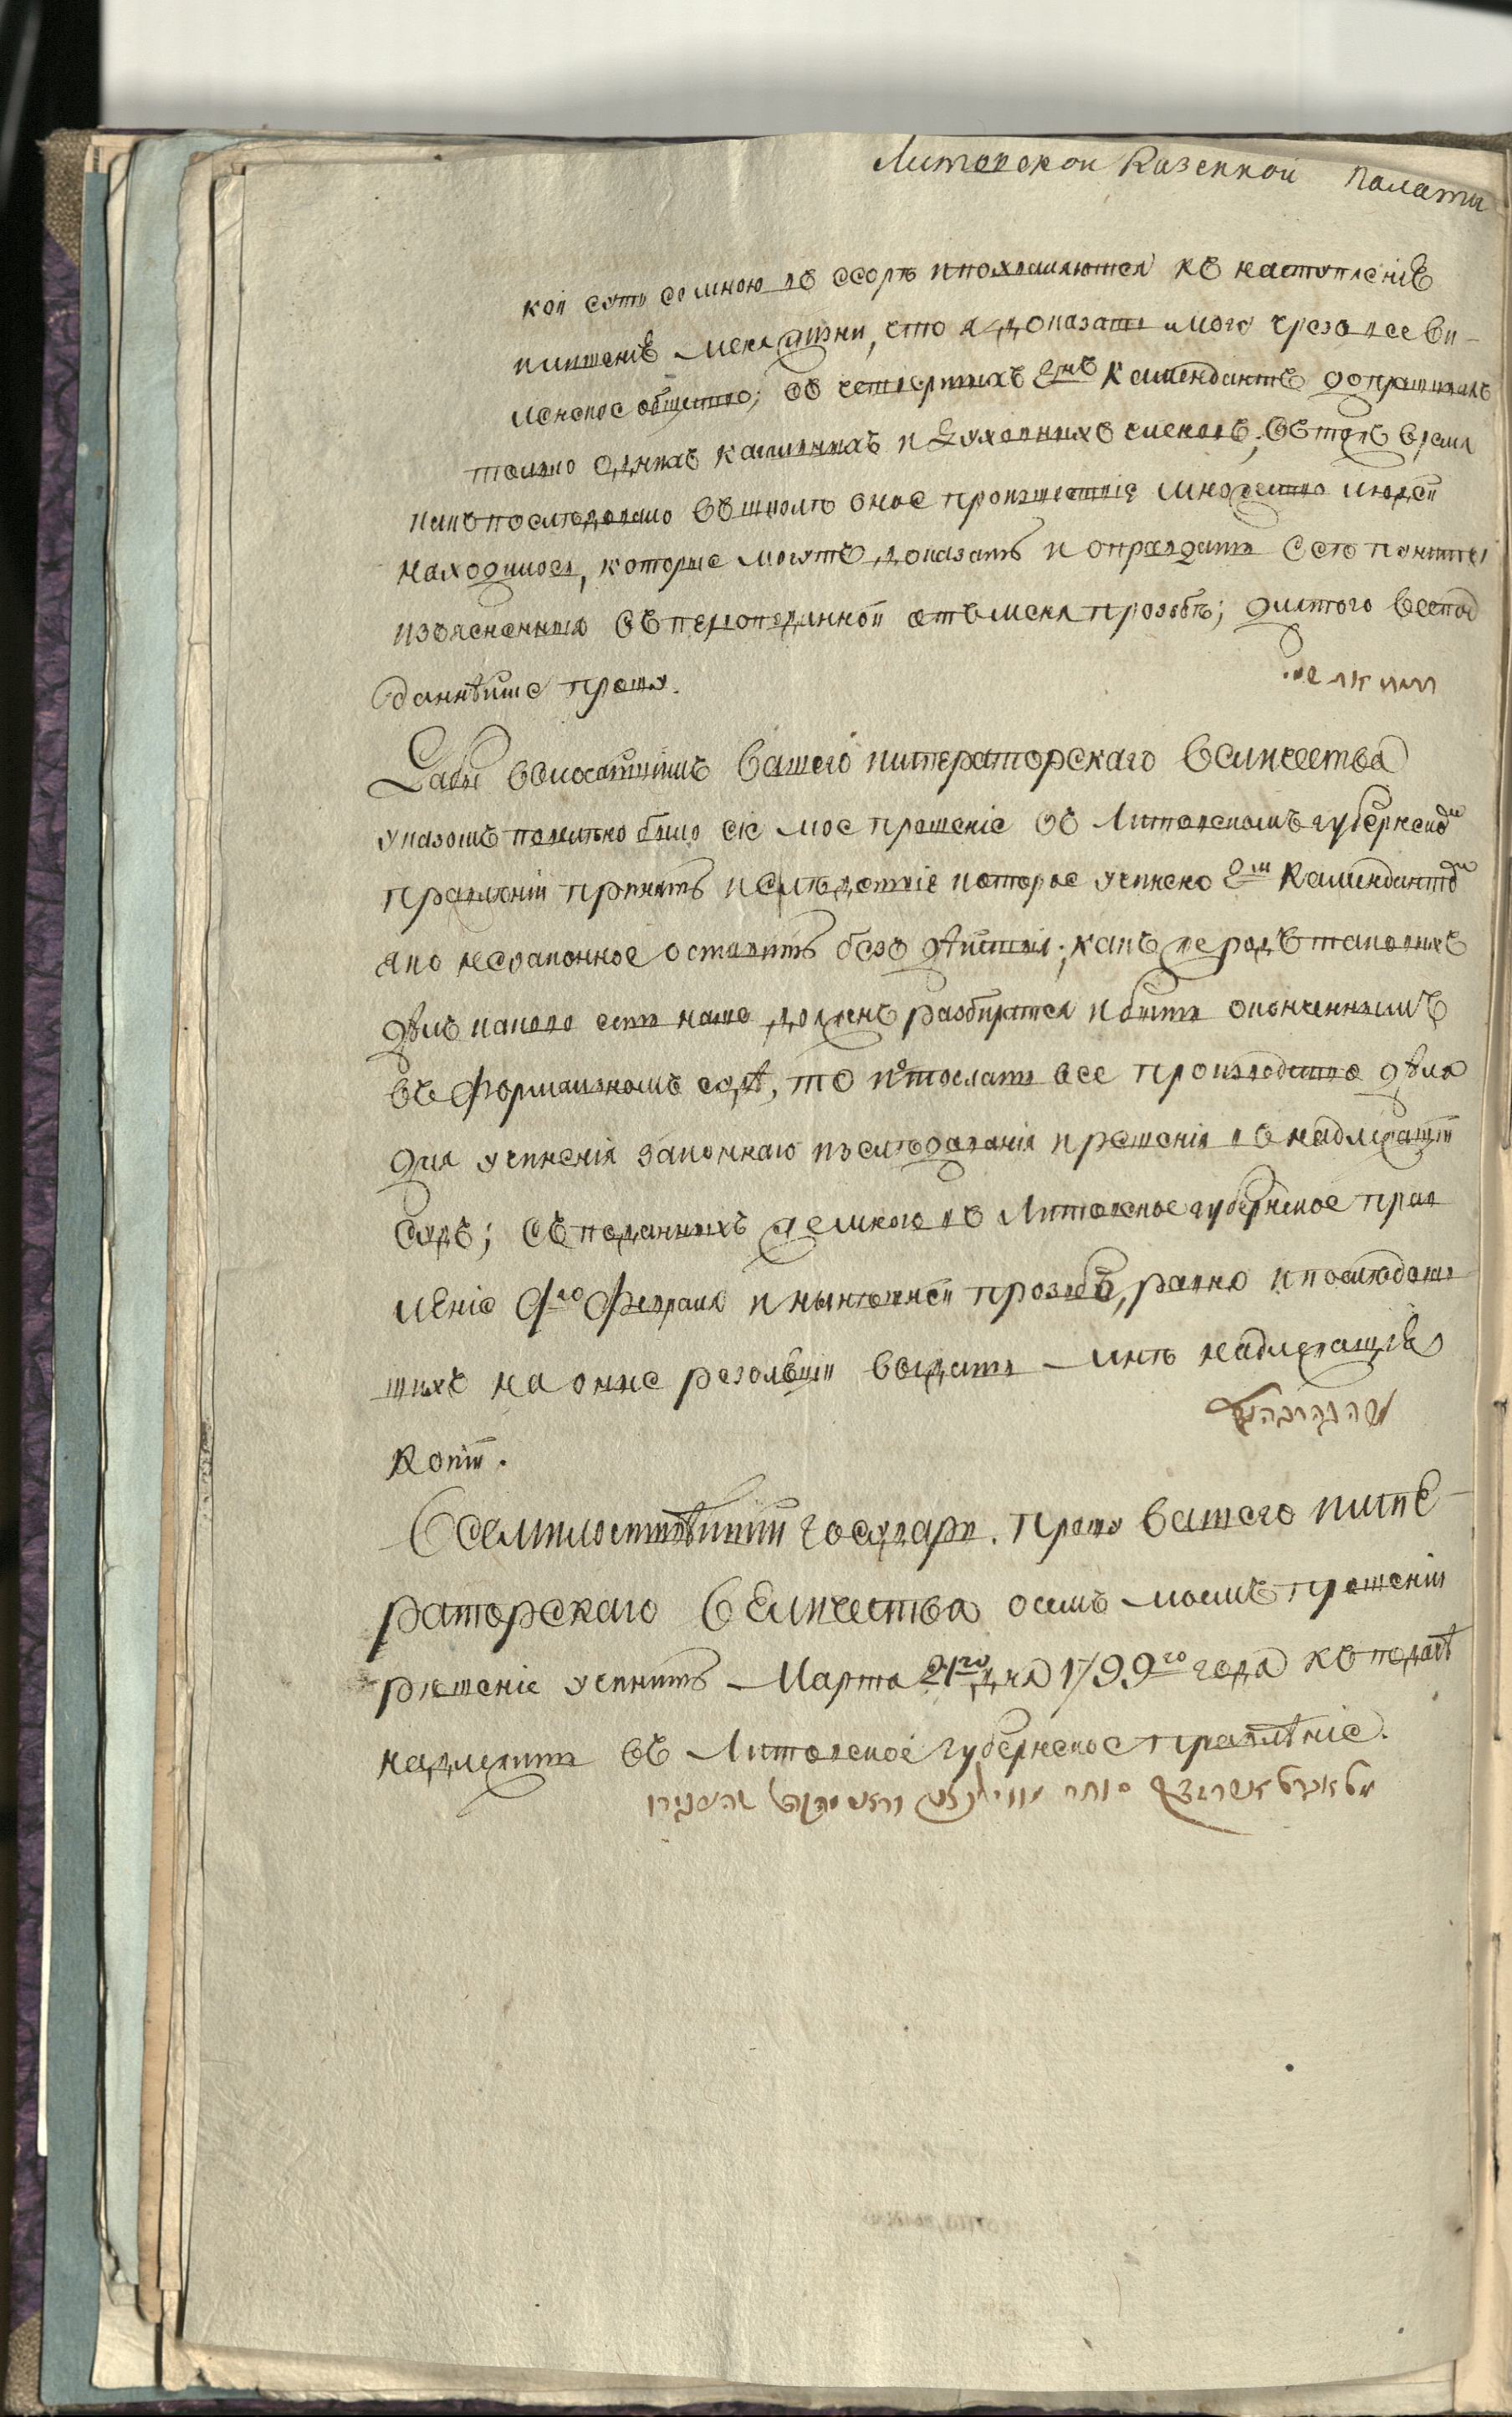 Литовской Казенной Палаты
кои суть со мною въ ссорѣ и похваляются къ наступленіе
и лишеніе меня жизни, что я и доказать могу чрезъ все Ви-
ленское общество; въ четвертыхъ Г-нъ Каммендантъ допрашивалъ
только однихъ кагальныхъ и духовныхъ членовъ, въ тожъ время
какъ последовало въ школѣ оное произшествіе множество людей
находилось, которые могутъ доказать и оправдать все то пункты
изъясненныя въ первоподанной отъ меня прозьбѣ; для того всепод
даннѣйше прошу.
Дабы высочайшимъ Вашего императорскаго величества
указомъ повелѣно было сіе мое прошеніе въ Литовскомъ губернскомъ
правленіи принять и слѣдствіе которое учинено Г-мъ Каммендантомъ
яко незаконное оставить безъ дѣйствія; какъ же родъ таковыхъ
дѣлъ каково есть наше долженъ разбиратся и быть оконченнымъ
въ формальномъ судѣ, то и отослать все производство дѣла
для учиненія законнаго изслѣдованія и решенія въ надлежащій
судъ; съ поданныхъ же мною въ Литовское губернское прав
леніе 9го февраля и нынѣшней прозьбъ, равно и последовав
шихъ на оные резолюціи выдать мнѣ надлежащіе
копіи.
Всемилостивѣйшій государь. Прошу вашего импе-
раторскаго величества о семъ моемъ прошеніи
рѣшеніе учинить Марта 21го дня 1799го года къ подачѣ
надлежитъ въ Литовское губернское правлѣніе.